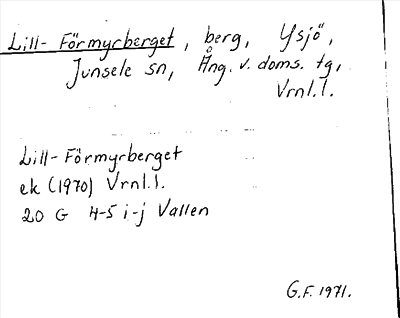 Lill-Förmyrberget, berg, Ysjö,
Junsele sn, Ång. v. doms. tg,
Vrnl.l.
Lill-Förmyrberget
ek (1970) Vrnl.l.
20 G 4-5 i-j Vallen
G.F. 1971.